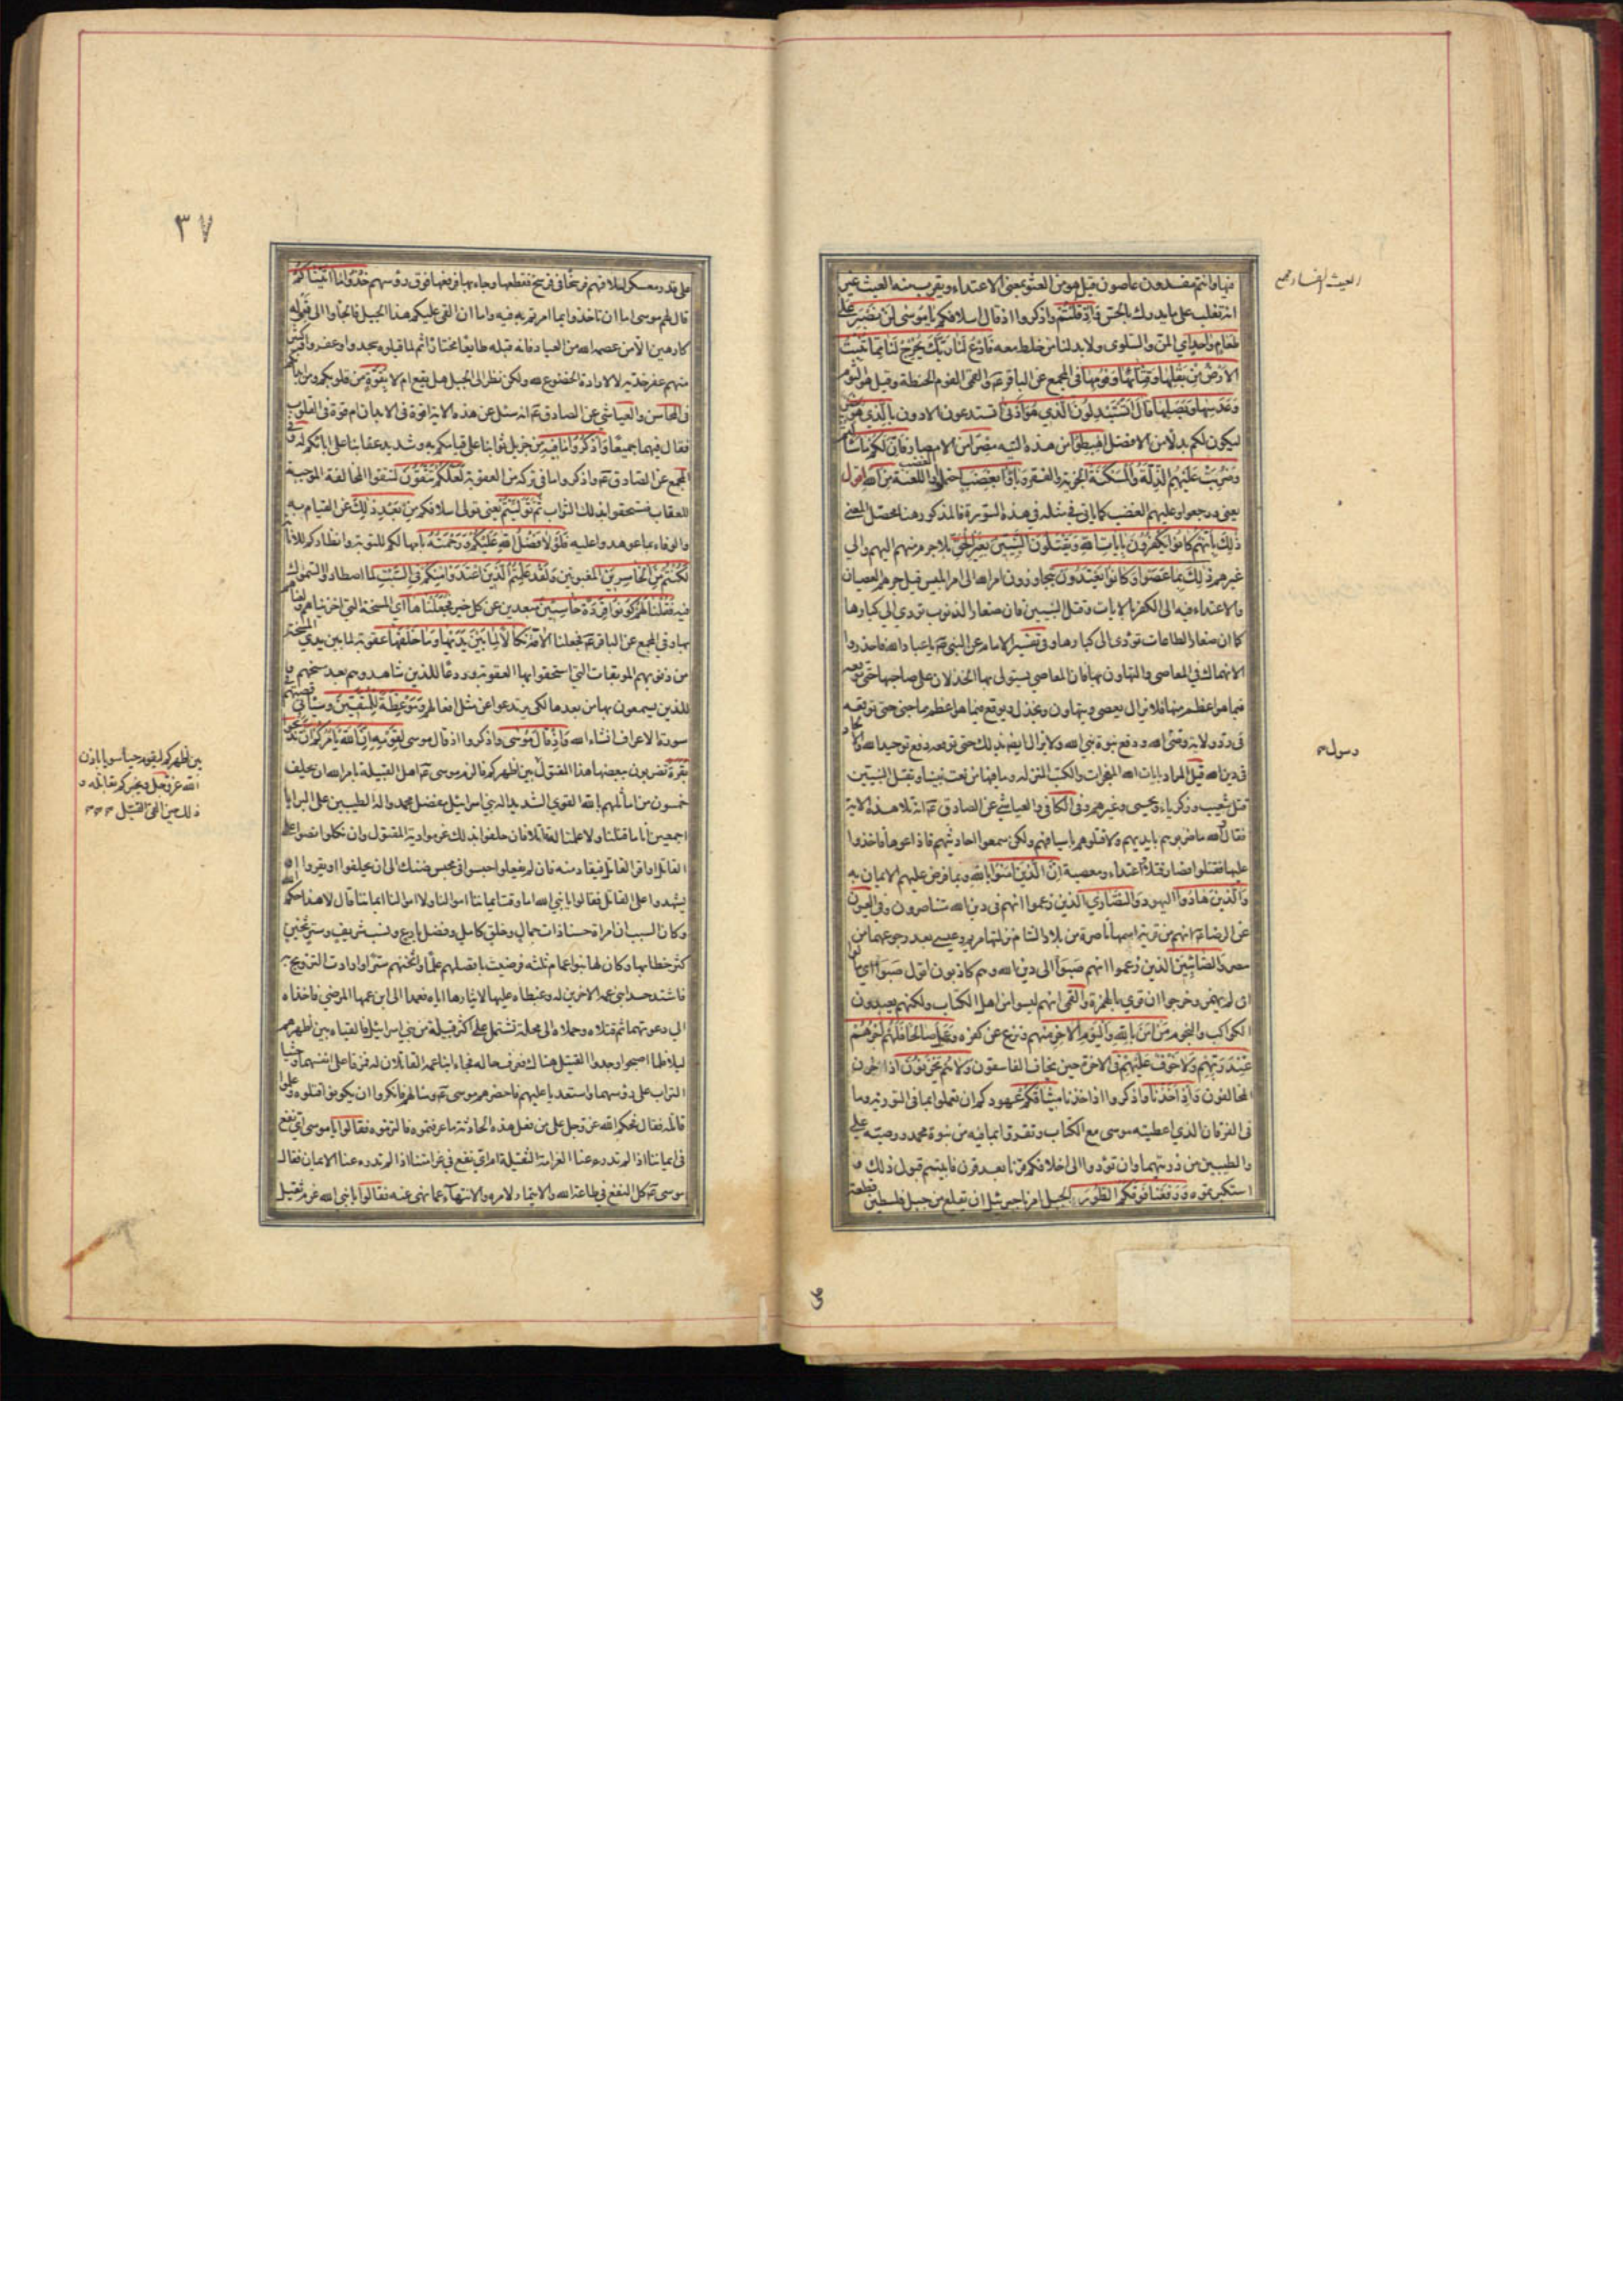 فيها وانتم مفسدون عاصون قيل هو من العثو بمعنى الاعتداء ويقرب منه العيث غير
انه تغلب على ما يدرك بالحس وَاِذْ قُلْتُمْ واذكروا اذ قال اسلافكم يا مُوسٰى لَنْ نَصْبِرَ عَلٰى
طَعامٍ وٰاحِدٍ اي المن والسلوى ولا بد لنا من خلط معه فَادْعُ لَنا رَبَّكَ يُخْرِجْ لَنا مِمّا تُنْبِتُ
الْاَرْضُ مِنْ بَقْلِها وَقِثّائِها وَفُومِها في المجمع عن الباقر ع والقمي الفوم الحنطة وقيل هو الثوم
وَعَدَسِها وَبَصَلِها قالَ اَتَسْتَبْدِلُونَ الَّذي هُوَ اَدْنٰى اتستدعون الادون بِالَّذي هُوَ خَيْرٌ
ليكون لكم بدلا من الافضل اِهْبِطُوا من هذه التيه مِصْرًا من الامصار فَاِنَّ لَكُمْ ما سَأَلْتُمْ
وَضُرِبَتْ عَلَيْهِمُ الذِّلَّةُ وَالْمَسْكَنَةُ الجزية والفقر وَباؤُا بِغَضَبٍ احتملوا الغضب واللعنة مِنَ اللهِ اقول
يعني ورجعوا وعليهم الغضب كما ياتي في مثله في هذه السورة فالمذكور هنا محصل المعنى
ذٰلِكَ بِاَنَّهُمْ كانُوا يَكْفُرُونَ بِاٰياتِ اللهِ وَيَقْتُلُونَ النَّبِيّينَ بِغَيْرِ الْحَقِّ بلا جرم منهم اليهم ولا الى
غيرهم ذٰلِكَ بِما عَصَوْا وَكانُوا يَعْتَدُونَ يتجاوزون امر الله الى امر ابليس قيل جرهم العصيان
والاعتداء فيه الى الكفر بالايات وقتل النبيين فان صغار الذنوب تؤدي الى كبارها
كما ان صغار الطاعات تؤدى الى كبارها وفي تفسير الامام عن النبي ص يا عباد الله فاحذروا
الانهماك في المعاصى والتهاون بها فان المعاصي يستولى بها الخذلان على صاحبها حتى توقعه
فيما هو اعظم منها فلا يزال يعصى ويتهاون ويخذل ويوقع فيما هو اعظم مما جنى حتى توقعه
فى رد ولاية وصى الله ودفع نبوة نبي الله ولا يزال ايضا بذلك حتى توقعه فى دفع توحيد الله والالحاد
فى دين الله قيل المراد بايات الله المعجزات والكتب المنزلة وما فيها من نعت نبينا وبقتل النبيين
قتل شعيب وزكريا ويحيى وغيرهم وفى الكافي والعياشي عن الصادق ع انه تلا هذه الاية
فقال والله ما ضربوهم بايديهم ولا قتلوهم باسيافهم ولكن سمعوا احاديثهم فاذاعوها فاخذوا
عليها فقتلوا فصار قتلا واعتداء ومعصية اِنَّ الَّذينَ اٰمَنُوا بالله وبما فرض عليهم الايمان به
وَالَّذينَ هادُوا اليهود وَالنَّصارٰى الذين زعموا انهم فى دين الله متناصرون وفي العيون
عن الرضا ع انهم من قرية اسمها ناصرة من بلاد الشام نزلتها مريم وعيسى بعد رجوعهما من
مصر وَالصّابِئينَ الذين زعموا انهم صبوا الى دين الله وهم كاذبون اقول صبوا اي مالوا
ان لم يهمز وخرجوا ان قرئ بالهمزة والقمى انهم ليسوا من اهل الكتاب ولكنهم يعبدون
الكواكب والنجوم مَنْ اٰمَنَ بِاللهِ وَالْيَوْمِ الْاٰخِرِ منهم ونزع عن كفره وَعَمِلَ صالِحًا فَلَهُمْ اَجْرُهُمْ
عِنْدَ رَبِّهِمْ وَلا خَوْفٌ عَلَيْهِمْ فى الاخرة حين يخاف الفاسقون وَلا هُمْ يَحْزَنُونَ اذا حزن
المخالفون وَاِذْ اَخَذْنا واذكروا اذ اخذنا ميثاقَكُمْ عهودكم ان تعملوا بما فى التورية وما
فى الفرقان الذي اعطيته موسى مع الكتاب وتقروا بما فيه من نبوة محمد ووصيته على
والطيبين من ذريتهما وان تؤدوا الى اخلافكم قرنا بعد قرن فابيتم قبول ذلك و
استكبرتموه وَرَفَعْنا فَوْقَكُمُ الطُّورَ الجبل امرنا جبرئيل ان يقلع من جبل فلسطين قطعة
العيث الفساد مجمع
رسول
٣٧
على قدر معسكر اسلافهم فرسخا فى فرسخ فقطعها وجاء بها فرفعها فوق رؤسهم خُذُوا ما اٰتَيْناكُمْ
قال لهم موسى اما ان تاخذوا بما امرتم به فيه واما ان القى عليكم هذا الجبل فالجأوا الى قبوله
كارهين الا من عصمه الله من العباد فانه قبله طايعا مختارا ثم لما قبلوه سجدوا وعفروا وكثير
منهم عفر خديه لا لارادة الخضوع لله ولكن نظر الى الجبل هل يقع ام لا بِقُوَّةٍ من قلوبكم ومن ابدانكم
فى المحاسن والعياشي عن الصادق ع انه سئل عن هذه الاية اقوة فى الابدان ام قوة فى القلوب
فقال فيهما جميعا وَاذْكُرُوا ما فيهِ من جزيل ثوابنا على قيامكم به وشديد عقابنا على ابائكم له وفى
المجمع عن الصادق ع واذكروا ما فى تركه من العقوبة لَعَلَّكُمْ تَتَّقُونَ لتتقوا المخالفة الموجبة
للعقاب فتستحقوا بذلك الثواب ثُمَّ تَوَلَّيْتُمْ يعني تولى اسلافكم مِنْ بَعْدِ ذٰلِكَ عن القيام به
والوفاء بما عوهدوا عليه فَلَوْلا فَضْلُ اللهِ عَلَيْكُمْ وَرَحْمَتُهُ بامهالكم للتوبة وانظاركم للانابة
لَكُنْتُمْ مِنَ الْخاسِرينَ المغبونين وَلَقَدْ عَلِمْتُمُ الَّذينَ اعْتَدَوْا مِنْكُمْ فِي السَّبْتِ لما اصطادوا السموك
فيه فَقُلْنا لَهُمْ كُونُوا قِرَدَةً خاسِئينَ مبعدين عن كل خير فَجَعَلْناها اي المسخة التى اخزيناهم ولعناهم
بها وفي المجمع عن الباقر ع فجعلنا الامة نَكالًا لِما بَيْنَ يَدَيْها وَما خَلْفَها عقوبة لما بين يدي المسخة
من ذنوبهم الموبقات التى استحقوا بها العقوبة وردعا للذين شاهدوهم بعد مسخهم و
للذين يسمعون بها من بعدها لكى يرتدعوا عن مثل افعالهم وَمَوْعِظَةً لِلْمُتَّقينَ وسياتى قصتهم
سورة الاعراف انشاء الله وَاِذْ قالَ مُوسٰى واذكروا اذ قال موسى لِقَوْمِهِ اِنَّ اللهَ يَأْمُرُكُمْ اَنْ تَذْبَحُوا
بَقَرَةً تضربون ببعضها هذا المقتول بين اظهركم قال لزم موسى ع اهل القبيلة بامر الله ان يحلف
خمسون من اماثلهم بالله القوي الشديد اله بنى اسرائيل مفضل محمد واله الطيبين على البرايا
اجمعين انا ما قتلنا ولا علمنا له قاتلا فان حلفوا بذلك غرموا دية المقتول وان نكلوا نصوا على
القاتل او اقر القاتل فيقاد منه فان لم يفعلوا احبسوا فى محبس ضنك الى ان يحلفوا او يقروا او
يشهدوا على القاتل فقالوا يا نبي الله اما وقت ايماننا اموالنا ولا اموالنا ايماننا قال لا هذا حكم الله
وكان السبب ان امراة حسناء ذات جمال وخلق كامل وفضل بارع ونسب شريف وستر ثخين
كثر خطابها وكان لها بنو اعمام ثلثة فرضيت بافضلهم علما واثخنهم سترا وارادت التزويج به
فاشتد حسد ابنى عمه الاخرين له وغبطاه عليها لايثارها اياه فعمدا الى ابن عمها المرضي فاخذاه
الى دعوتهما ثم قتلاه وحملاه الى محلة تشتمل على اكثر قبيلة من بني اسرائيل فالقياه بين اظهرهم
ليلا فلما اصبحوا وجدوا القتيل هناك فعرف حاله فجاء ابنا عمه القاتلان له فمزقا على انفسهما وحثيا
التراب على رؤسهما واستعديا عليهم فاحضرهم موسى ع وسالهم فانكروا ان يكونوا قتلوه وعلموا
قاتله فقال يحكم الله عز وجل على من فعل هذه الحادثة ما عرفتموه فالتزموه فقالوا يا موسى اي نفع
فى ايماننا اذا لم تدرء عنا الغرامة الثقيلة ام اي نفع في غرامتنا اذا لم تدرء عنا الايمان فقال
موسى ع كل النفع في طاعة الله والايتمار لامره والانتهاء عما نهى عنه فقالوا يا نبى الله غرم ثقيل
بين اظهركم ليقوم حيا سويا باذن
الله عز وجل ويخبركم بقاتله و
ذلك حين القى القتيل